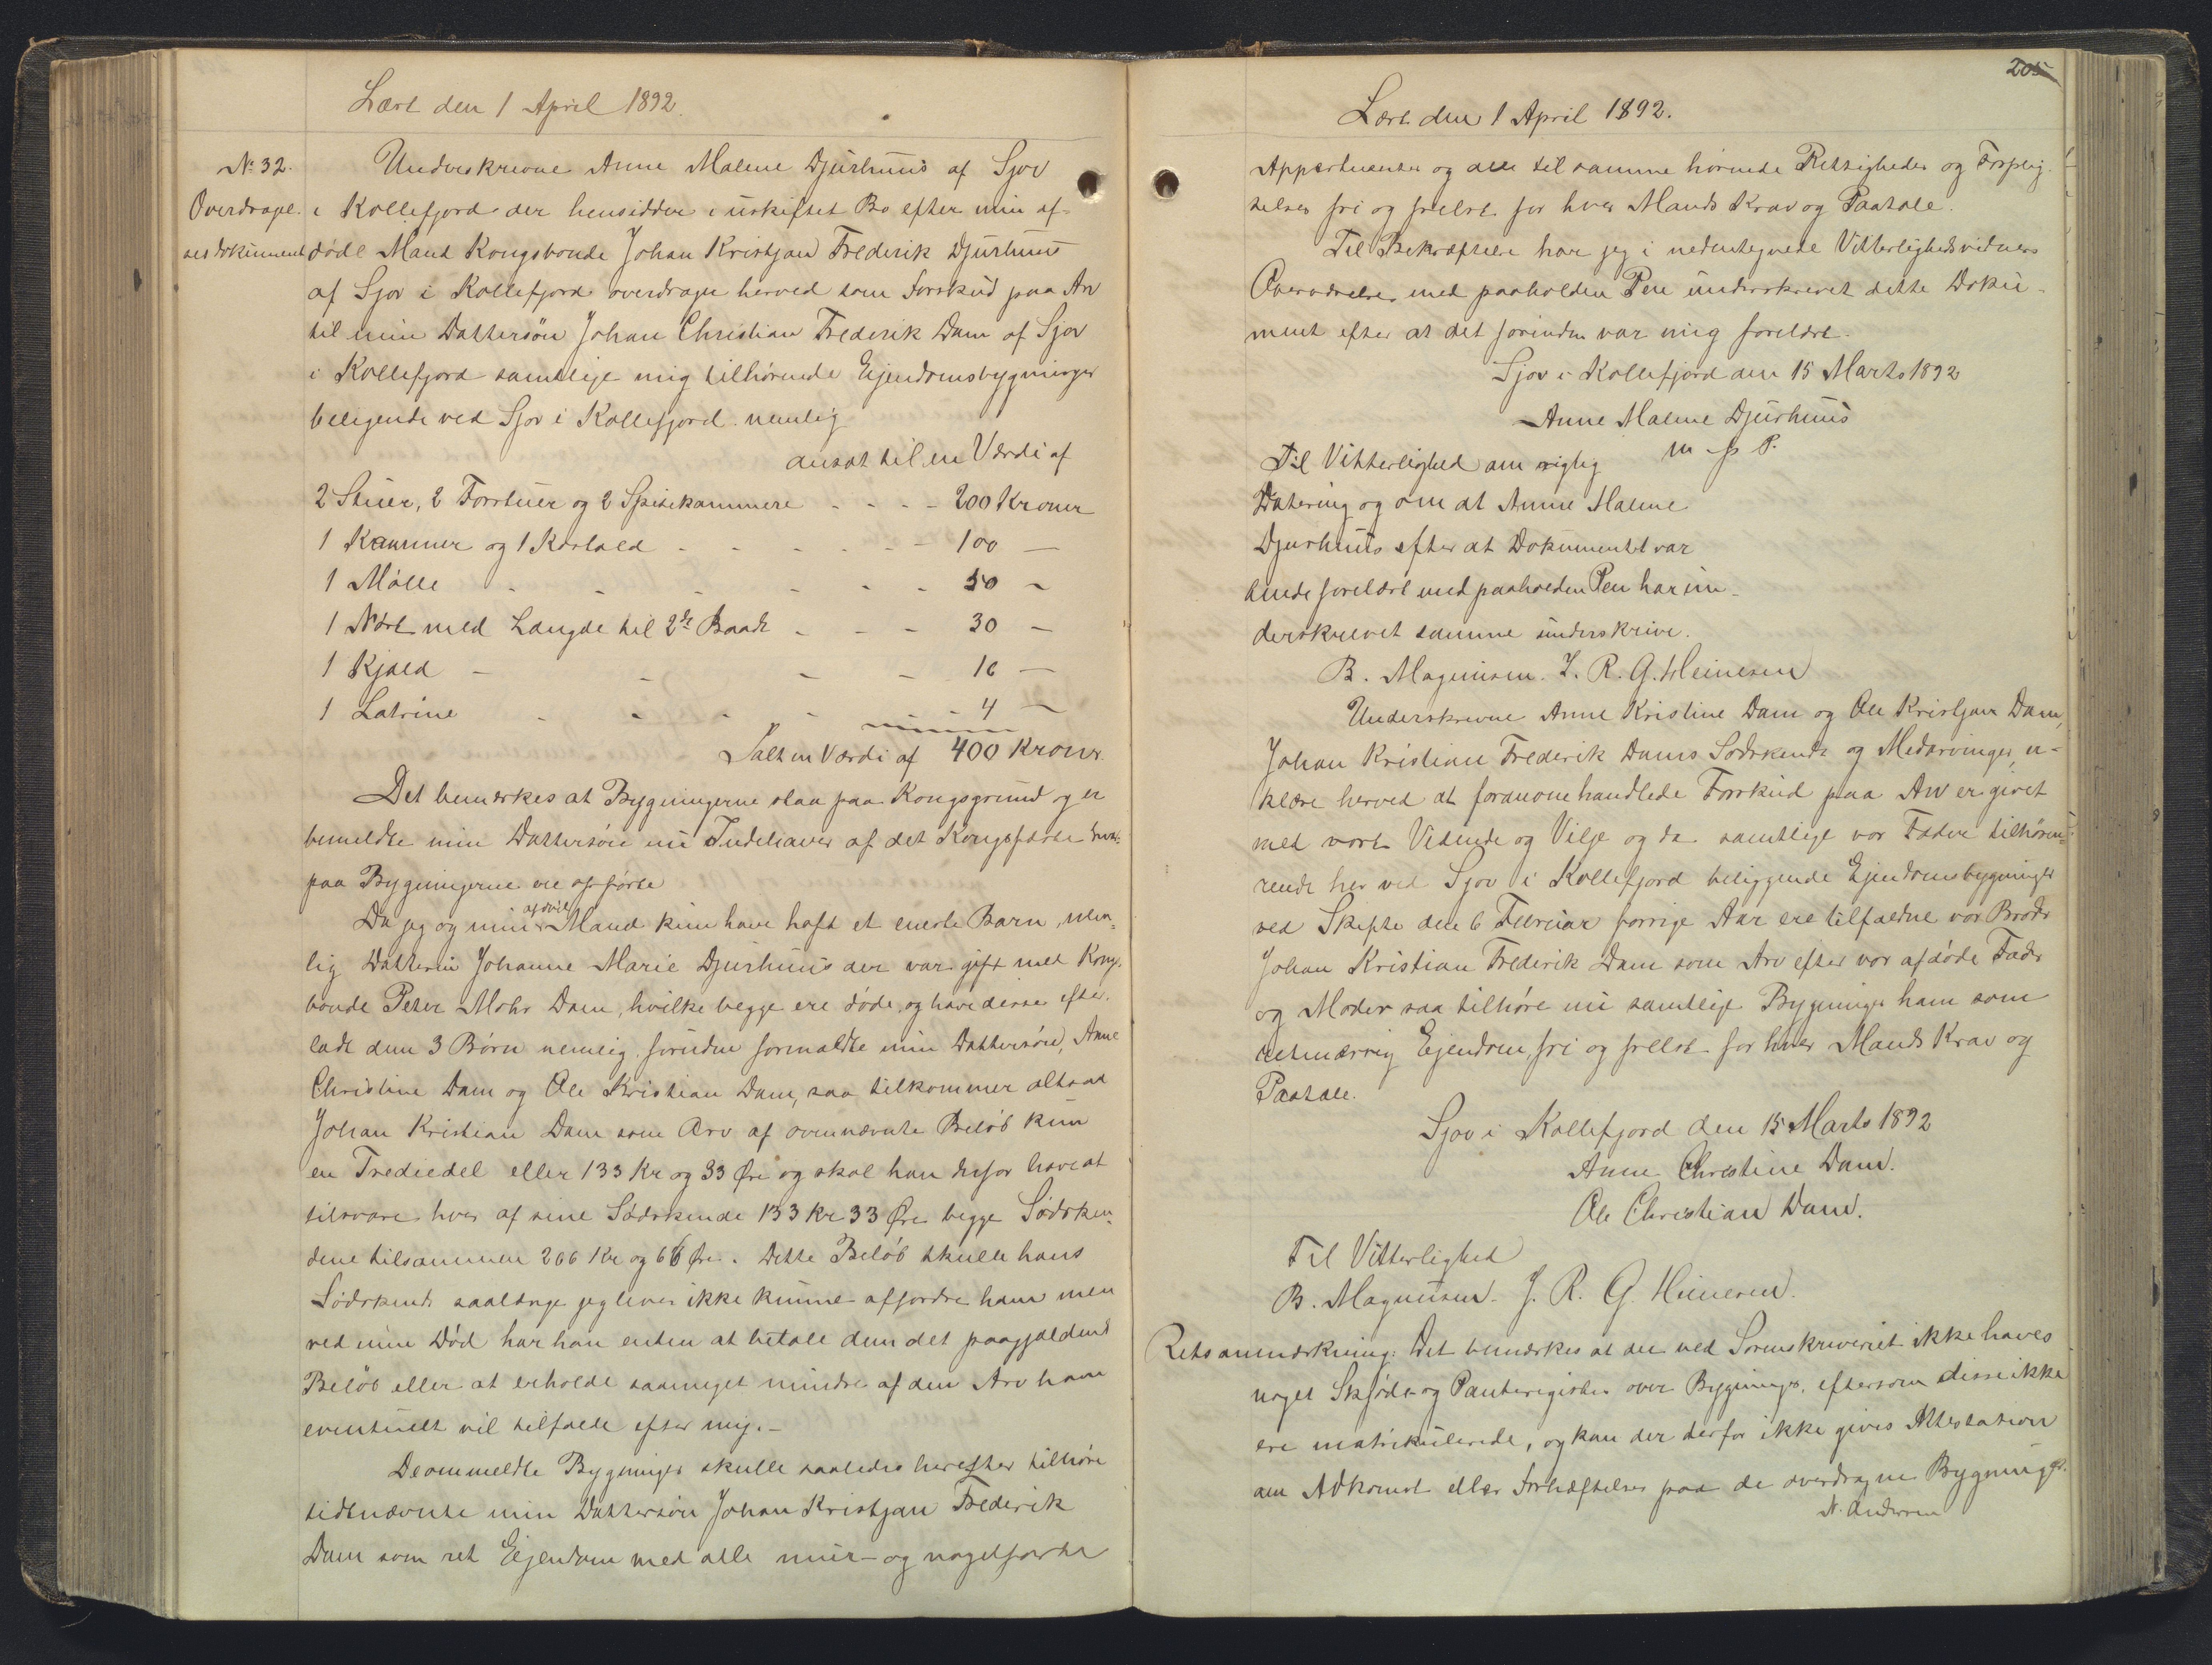 Læst den 1 April 1892.
No 32.
Overdragel-
sesdokument
Underskrevne Anne Malene Djurhuus af Sjov
i Kollefjord der hensidder i uskiftet Bo efter min af-
døde Mand Kongsbonde Johan Kristjan Frederik Djurhuus
af Sjov i Kollefjord overdrager herved som Forskud paa Arv
til min Dattersön Johan Christian Frederik Dam af Sjov
i Kollefjord samtlige mig tilhørende Ejendomsbygninger
beligende ved Sjov i Kollefjord nemlig
ansat til en Værdi af
2 Stuer, 2 Forstuer og 2 Spisekammere - - - 200 Kroner
1 Kammer og 1 Kostald - - - - - 100 —
1 Mølle - - - - - - 50 -
1 Nøst med Længde til 2de Baade - - - 30 -
1 Kjald - - - - 16 —
1 Latrine - - - - - 4 —
I alt en Værdi af 400 Kroner.
Det bemærkes at Bygningerne staa paa Kongsgrund og er
bemeldte min Dattersön nu Indehaver af det Kongsfæste hvor-
paa Bygningerne ere opførte
Da jeg og min afdøde Mand kun have haft et eneste Barn, nem-
lig Datteren Johanne Marie Djurhuus der var gift med Kongs-
bonde Peter Mohr Dam, hvilke begge ere døde, og have disse efter-
ladt dem 3 Børn nemlig foruden formeldte min Dattersön, Anne
Christine Dam og Ole Kristian Dam, saa tilkommer altsaa
Johan Kristian Dam som Arv af ovennævnte Beløb kun
en Trediedel eller 133 Kr og 33 Øre og skal han derfor have at
tilsvare hver af sine Sødskende 133 Kr 33 Øre begge Sødsken-
dene tilsammen 266 Kr og 66 Øre. Dette Beløb skulle hans
Sødskende saalænge jeg lever ikke kunne affordre ham men
ved min Død har han enten at betale dem det paagjældende
Beløb eller at erholde saameget mindre af den Arv ham
eventuelt vil tilfalde efter mig.-
De ommeldte Bygninger skulle saaledes herefter tilhøre
tidtnævnte min Dattersön Johan Kristjan Frederik
Dam som ret Ejendom med alle mur- og nagelfaste
205
Læst den 1 April 1892.
Appertinentser og alle til samme hørende Rettigheder og Forplig-
telser fri og frelst for hver Mands Krav og Paatale.
Til Bekræftelse har jeg i nedentegnede Vitterlighedsvidners
Overværelse med paaholden Pen underskrevet dette Doku-
ment efter at det forinden var mig forelæst.
Sjov i Kollefjord den 15 Marts 1892
Anne Malene Djurhuus
m. p. P.
Til Vitterlighed om rigtig
Datering og om at Anne Malene
Djurhuus efter at Dokumentet var
hende forelæst med paaholden Pen har un-
derskrevet samme underskrive.
B. Magnusen. J. R. G. Heinesen
Underskrevne Anne Kristine Dam og Ole Kristjan Dam,
Johan Kristian Frederik Dams Sødskende og Medarvinger, er-
klære herved at foranomhandlede Forskud paa Arv er givet
med vort Vidende og Vilje og da samtlige vor Fader tilhøren-
rende her ved Sjov i Kollefjord beliggende Ejendomsbygninger
ved Skifte den 6 Februar forrige Aar ere tilfaldne vor Broder
Johan Kristian Frederik Dam som Arv efter vor afdøde Fader
og Moder saa tilhøre nu samtlige Bygninger ham som
retmæssig Ejendom, fri og frelst for hver Mands Krav og
Paatale.
Sjov i Kollefjord den 15 Marts 1892
Anne Christine Dam.
Ole Christian Dam.
Til Vitterlighed
B. Magnusen. J. R. G. Heinesen.
Retsanmærkning: Det bemærkes at der ved Sorenskriveriet ikke haves
noget Skjøde- og Panteregister over Bygninger, eftersom disse ikke
ere matrikulerede, og kan der derfor ikke gives Attestation
om Adkomst eller Forhæftelser paa de overdragne Bygninger.
N. Andersen